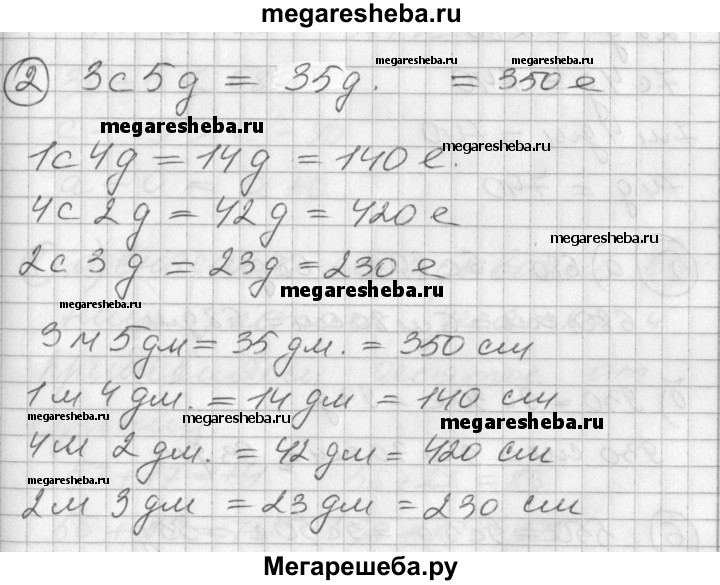 megaresheba.ru
② 3с 5д = 35д. megaresheba.ru = megaresheba.ru 350 е
megaresheba.ru
1с 4д = 14д = 140 е. megaresheba.ru
4с 2д = 42д = 420 е
megaresheba.ru
2с 3д = 23д = 230 е
megaresheba.ru
megaresheba.ru
3м 5дм = 35 дм. = 350 см
1м 4 дм. = 14 дм = 140 см
megaresheba.ru megaresheba.ru megaresheba.ru
4м 2 дм. = 42 дм = 420 см
megaresheba.ru
2м 3 дм = 23 дм = 230 см
Мегарешеба.ру